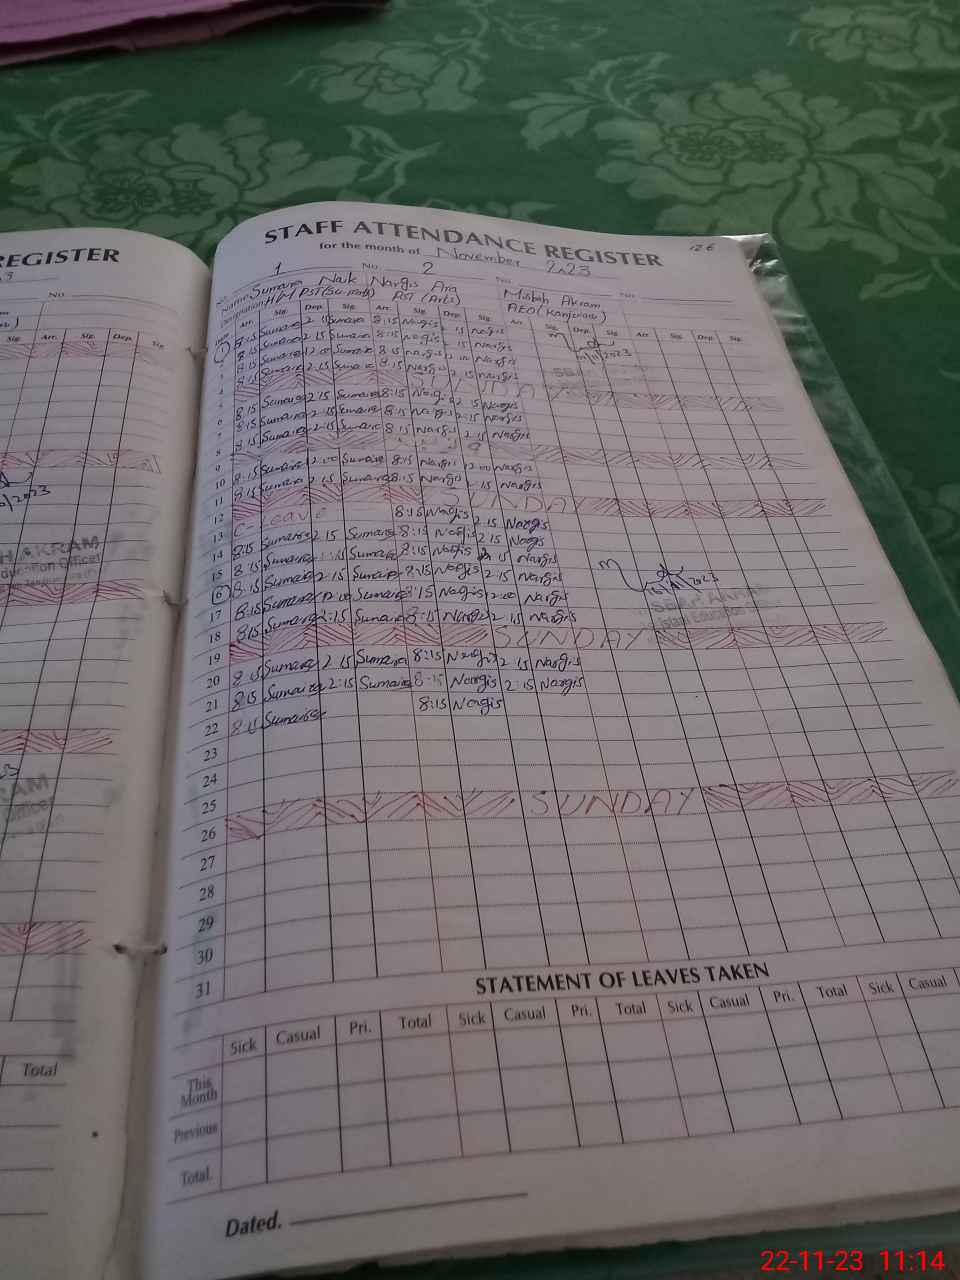 REGISTER
No.
Arr. Sig. Dep. Sig.
AKRAM
Total
STAFF ATTENDANCE REGISTER
126
for the month of November 2023
1 No. 2 No. No.
Name Sumaira Naik Nargis Ara Misbah Akram
Designation H/M PST (Sc. math) PST (Arts) AEO (Kanjwani)
Arr. Sig. Dep. Sig. Arr. Sig. Dep. Sig. Arr. Sig. Dep. Sig. Arr. Sig. Dep. Sig.
1 8:15 Sumaira 2:15 Sumaira 8:15 Nargis 2:15 Nargis
8:15 Sumaira 2:15 Sumaira 8:15 Nargis 2:15 Nargis
8:15 Sumaira 12:00 Sumaira 8:15 Nargis 12:00 Nargis
4 8:15 Sumaira 2:15 Sumaira 8:15 Nargis 2:15 Nargis
5
6 8:15 Sumaira 2:15 Sumaira 8:15 Nargis 2:15 Nargis
7 8:15 Sumaira 2:15 Sumaira 8:15 Nargis 2:15 Nargis
8 8:15 Sumaira 2:15 Sumaira 8:15 Nargis 2:15 Nargis
9
10 8:15 Sumaira 12:00 Sumaira 8:15 Nargis 12:00 Nargis
11 8:15 Sumaira 2:15 Sumaira 8:15 Nargis 2:15 Nargis
12 SUNDAY
13 C-Leave 8:15 Nargis 2:15 Nargis
14 8:15 Sumaira 2:15 Sumaira 8:15 Nargis 2:15 Nargis
15 8:15 Sumaira 2:15 Sumaira 8:15 Nargis 2:15 Nargis
16 8:15 Sumaira 2:15 Sumaira 8:15 Nargis 2:15 Nargis
17 8:15 Sumaira 12:00 Sumaira 8:15 Nargis 12:00 Nargis
18 8:15 Sumaira 2:15 Sumaira 8:15 Nargis 2:15 Nargis
19 SUNDAY
20 8:15 Sumaira 2:15 Sumaira 8:15 Nargis 2:15 Nargis
21 8:15 Sumaira 2:15 Sumaira 8:15 Nargis 2:15 Nargis
22 8:15 Sumaira 8:15 Nargis
23
24
25
26 SUNDAY
27
28
29
30
31
STATEMENT OF LEAVES TAKEN
Sick Casual Pri. Total Sick Casual Pri. Total Sick Casual Pri. Total Sick Casual
This Month
Previous
Total
Dated.
22-11-23 11:14